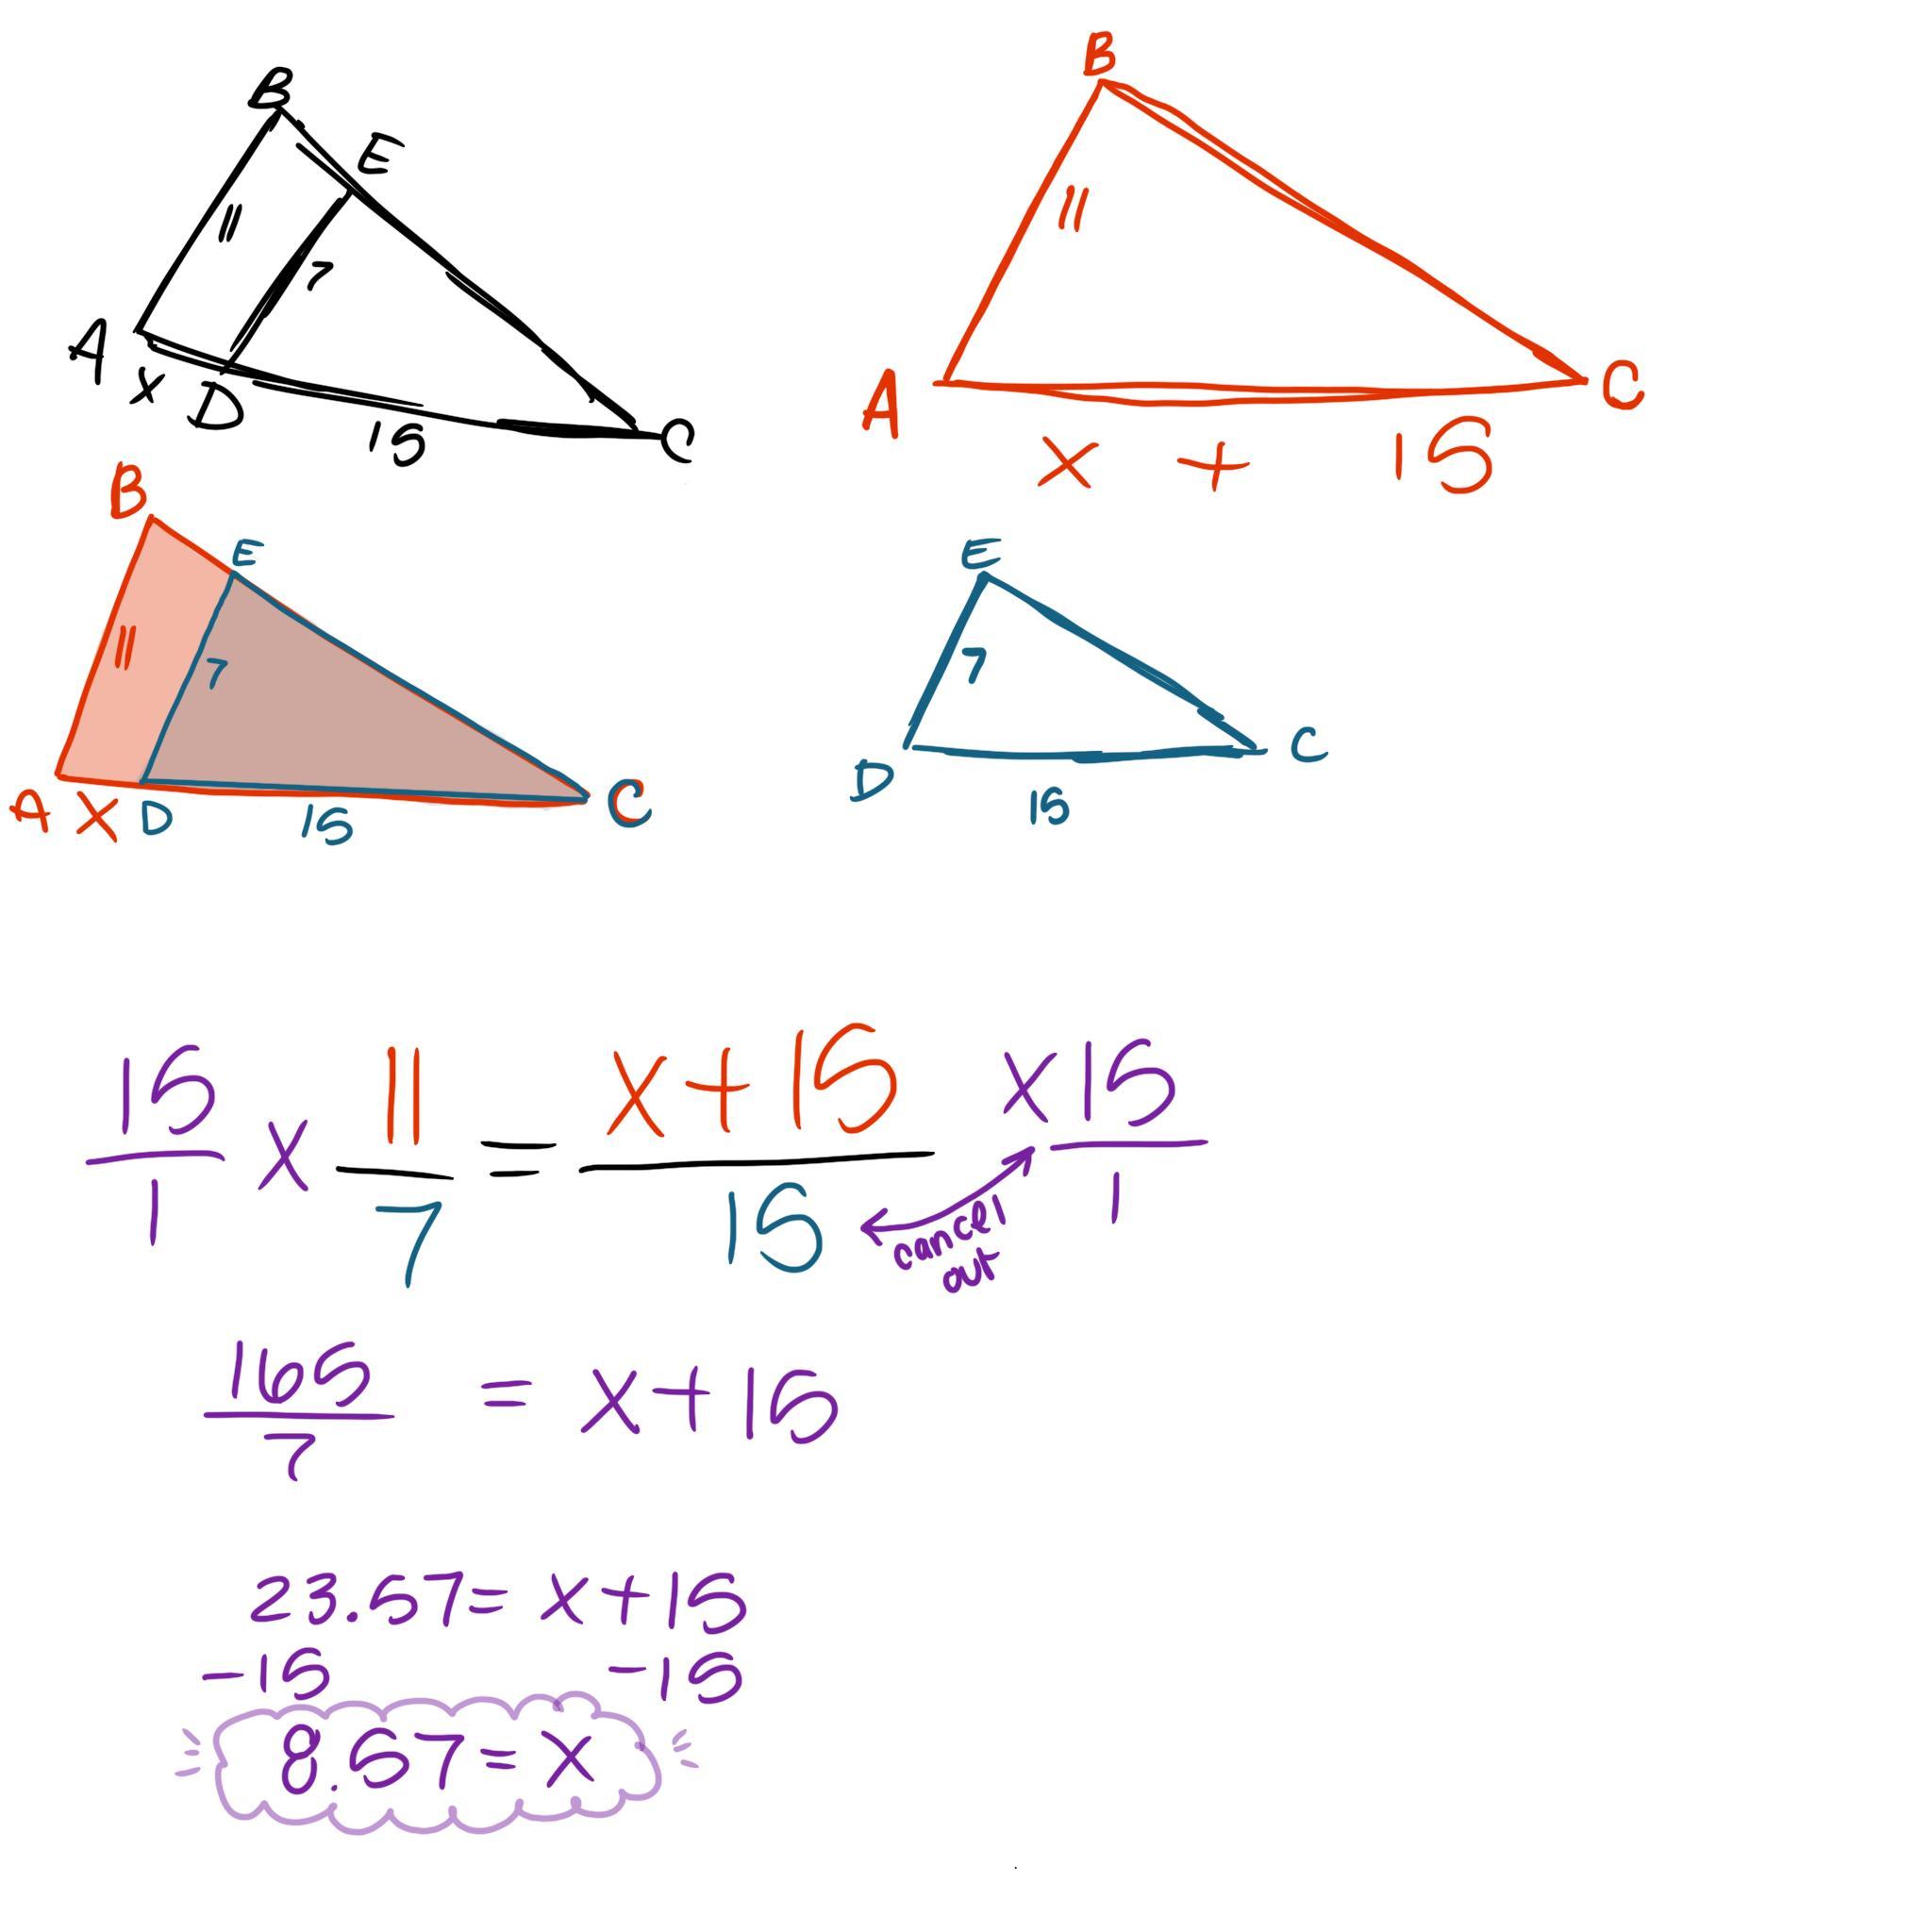 B
E
11
7
A
X
D
15
C
B
11
A
C
X + 15
B
E
11
7
A X D
15
C
E
7
D
C
15
15/1 x 11/7 = x+15/15 x15/1
cancel
out
165/7 = x+15
23.57= x+15
-15 -15
8.57=x